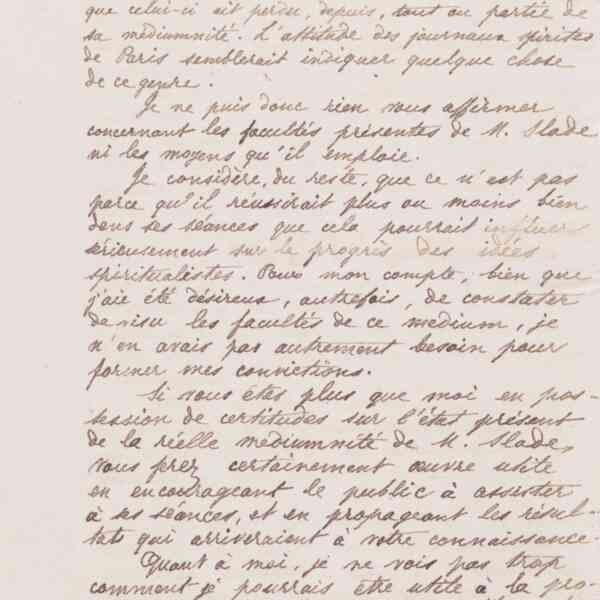 que celui-ci ait perdu, depuis, tout ou partie de
sa médiumnité. L'attitude des journaux spirites
de Paris semblerait indiquer quelque chose
de ce genre.
Je ne puis donc rien vous affirmer
concernant les facultés présentes de M. Slade
ni les moyens qu'il emploie.
Je considère, du reste, que ce n'est pas
parce qu'il réussirait plus ou moins bien
dans ses séances que cela pourrait influer
sérieusement sur le progrès des idées
spiritualistes. Pour mon compte, bien que
j'aie été désireux, autrefois, de constater
de visu les facultés de ce medium, je
n'en avais pas autrement besoin pour
former mes convictions.
Si vous êtes plus que moi en pos-
session de certitudes sur l'état présent
de la réelle médiumnité de M. Slade,
vous ferez certainement œuvre utile
en encourageant le public à assister
à ses séances, et en propageant les résul-
tats qui arriveraient à votre connaissance.
Quant à moi, je ne vois pas trop
comment je pourrais être utile à la pro-